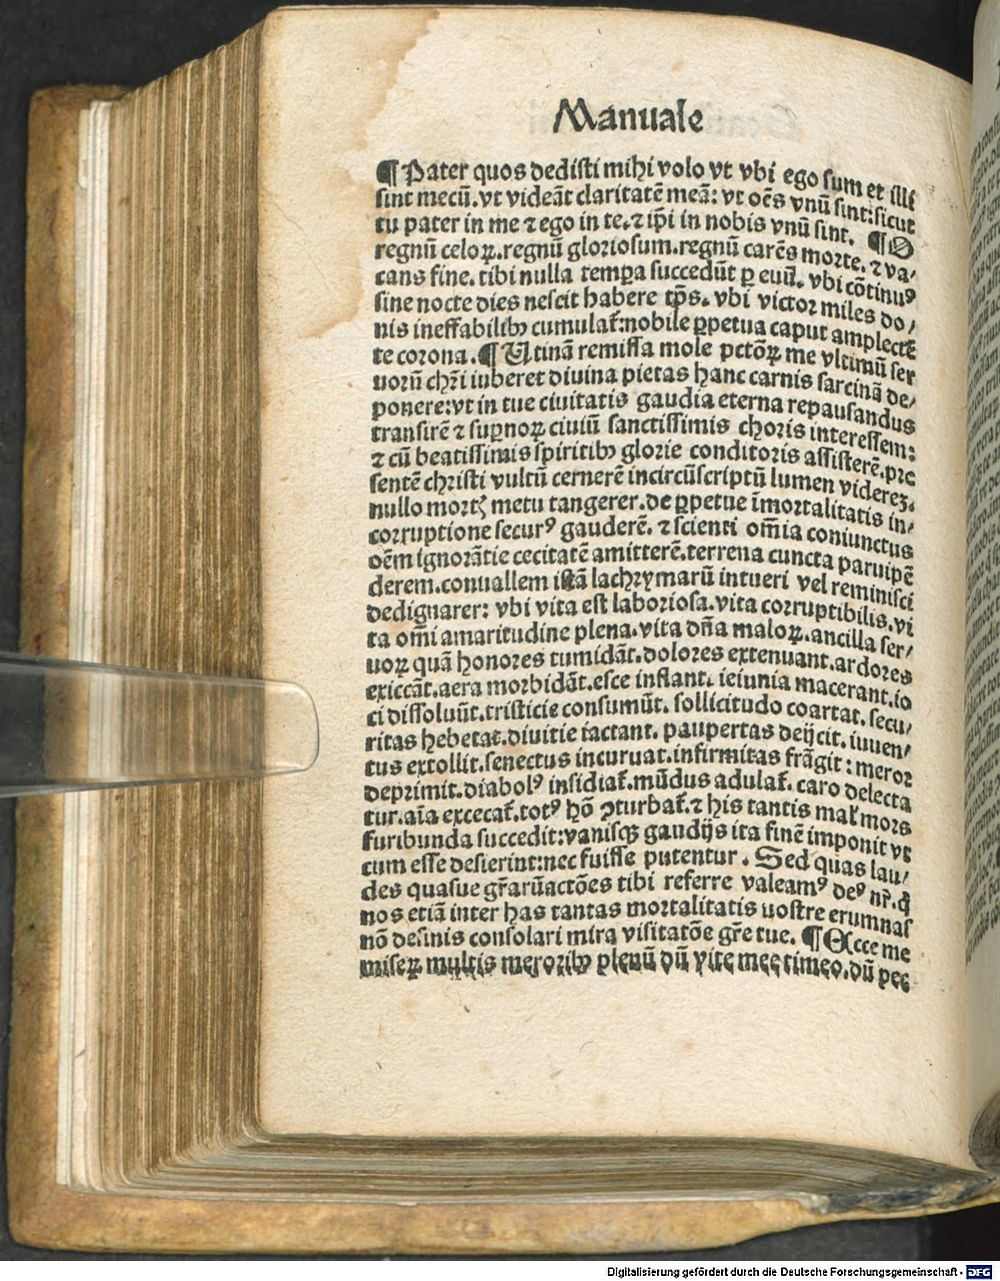 Manuale
¶ Pater quos dedisti mihi volo vt vbi ego sum et illi
sint mecū. vt videāt claritatē meā: vt oēs vnū sint: sicut
tu pater in me ⁊ ego in te. ⁊ ip̄i in nobis vnū sint. ¶ O
regnū celoꝝ. regnū gloriosum. regnū carēs morte. ⁊ va/
cans fine. tibi nulla tempꝑa succedūt ꝑ euū. vbi cōtinuꝰ
sine nocte dies nescit habere tp̄s. vbi victor miles do/
nis ineffabilibꝫ cumulaꝷ: nobile ꝑpetua caput amplectē
te corona. ¶ Utinā remissa mole pctōꝝ me vltimū ser
uorū chr̄i iuberet diuina pietas hanc carnis sarcinā de/
ponere: vt in tue ciuitatis gaudia eterna repausandus
transirē ⁊ suꝑnoꝝ ciuiū sanctissimis choris interessem:
⁊ cū beatissimis spiritibꝫ glorie conditoris assisterē. pre
sentē christi vultū cernerē incircūscriptū lumen viderez.
nullo mortꝭ metu tangerer. de ꝑpetue īmortalitatis in/
corruptione securꝰ gauderē. ⁊ scienti om̄ia coniunctus
oēm ignorātie cecitatē amitterē. terrena cuncta paruipē
derem. conuallem istā lachrymarū intueri vel reminisci
dedignarer: vbi vita est laboriosa. vita corruptibilis. vi
ta om̄i amaritudine plena. vita dn̄a maloꝝ. ancilla ser/
uoꝝ quā honores tumidāt. dolores extenuant. ardores
exiccāt. aera morbidāt. esce inflant. ieiunia macerant. io
ci dissoluūt. tristicie consumūt. sollicitudo coartat. secu/
ritas hebetat. diuitie iactant. paupertas deijcit. iuuen/
tus extollit. senectus incuruat. infirmitas frāgit: meror
deprimit. diabolꝰ insidiaꝷ. mūdus adulaꝷ. caro delecta
tur. aīa excecaꝷ. totꝰ hō ꝯturbaꝷ. ⁊ his tantis mal̄ mors
furibunda succedit: vanisqꝫ gaudijs ita finē imponit vt
cum esse desierint: nec fuisse putentur. Sed quas lau/
des quasue gr̄arū actōes tibi referre valeamꝰ deꝰ nr̄. ꝗ
nos etiā inter has tantas mortalitatis nostre erumnas
nō desinis consolari mira visitatōe gr̄e tue. ¶ Ecce me
miseꝝ multis meroribꝫ plenū dū vite mee timeo. dū pec
Digitalisierung gefördert durch die Deutsche Forschungsgemeinschaft - DFG